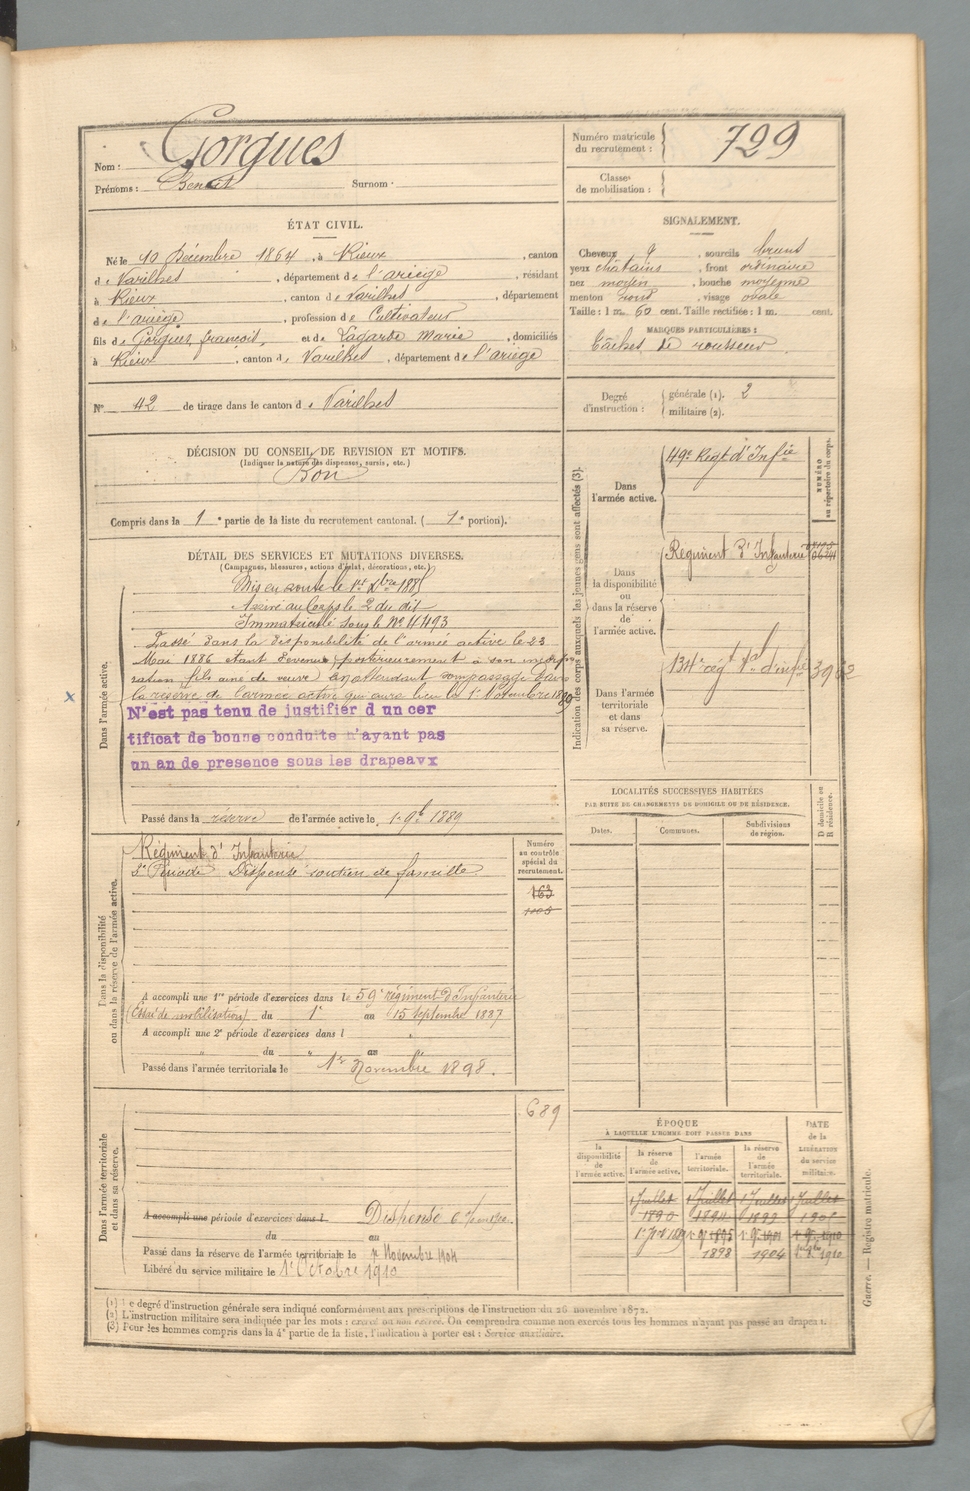 Nom : Gorgues
Prénoms : Benoit Surnom :
Numéro matricule du recrutement : 729
Classe de mobilisation :
ÉTAT CIVIL.
Né le 10 Décembre 1864, à Rieux, canton
de Varilhes, département de l'ariège, résidant
à Rieux, canton de Varilhes, département
de l'ariège, profession de Cultivateur
fils de Gorgues françois, et de Lagarde Marie, domiciliés
à Rieux, canton de Varilhes, département de l'ariège
N° 42 de tirage dans le canton de Varilhes
SIGNALEMENT.
Cheveux , sourcils bruns
yeux châtains, front ordinaire
nez moyen, bouche moyenne
menton rond, visage ovale
Taille : 1 m. 60 cent. Taille rectifiée : 1 m. cent.
MARQUES PARTICULIÈRES :
Tâches de rousseur
Degré d'instruction : générale (1). 2
militaire (2).
DÉCISION DU CONSEIL DE REVISION ET MOTIFS.
(Indiquer la nature des dispenses, sursis, etc.)
Bon
Compris dans la 1e partie de la liste du recrutement cantonal. ( 1e portion).
DÉTAIL DES SERVICES ET MUTATIONS DIVERSES.
(Campagnes, blessures, actions d'éclat, décorations, etc.)
Dans l'armée active.
Mis en route le 1er Xbre 1885
Arrivé au Corps le 2 du dit
Immatriculé sous le N° 4493
Passé dans la disponibilité de l'armée active le 23
Mai 1886 étant devenu postérieurement à son incorpo
ration fils ainé de veuve en attendant son passage dans
la réserve de l'armée active qui aura lieu le 1er Novembre 1889
N'est pas tenu de justifier d un cer
tificat de bonne conduite n'ayant pas
un an de presence sous les drapeavx
Passé dans la réserve de l'armée active le 1er 9bre 1889
Dans la disponibilité ou dans la réserve de l'armée active.
Régiment d'Infanterie
2e Période Dispensé soutien de famille
Numéro au contrôle spécial du recrutement.
163
A accompli une 1re période d'exercices dans le 59e régiment d'Infanterie
(Essai de mobilisation) du 1er au 15 Septembre 1887
A accompli une 2e période d'exercices dans l
" du " au "
Passé dans l'armée territoriale le 1er Novembre 1898.
Dans l'armée territoriale et dans sa réserve.
689
A accompli une période d'exercices dans l Dispensé
du au
Passé dans la réserve de l'armée territoriale le 1er Novembre 1904
Libéré du service militaire le 1er Octobre 1910
Indication des corps auxquels les jeunes gens sont affectés (3).
Dans l'armée active.
49e Régt d'Infie
NUMÉRO au répertoire du corps.
Dans la disponibilité ou dans la réserve de l'armée active.
Régiment d'Infanterie
Dans l'armée territoriale et dans sa réserve.
134e rég.t t.al d'infie
LOCALITÉS SUCCESSIVES HABITÉES
PAR SUITE DE CHANGEMENTS DE DOMICILE OU DE RÉSIDENCE.
Dates. Communes. Subdivisions de région. D domicile ou R résidence.
ÉPOQUE
À LAQUELLE L'HOMME DOIT PASSER DANS
DATE de la LIBÉRATION du service militaire.
la disponibilité de l'armée active. la réserve de l'armée active. l'armée territoriale. la réserve de l'armée territoriale.
1 Juillet 1 Juillet 1 Juillet 1 Juillet
1890 1899
1er 9bre 1889 1895 1901 1910
1898 1904 1910
(1) Le degré d'instruction générale sera indiqué conformément aux prescriptions de l'instruction du 26 novembre 1872.
(2) L'instruction militaire sera indiquée par les mots : exercé ou non exercé. On comprendra comme non exercés tous les hommes n'ayant pas passé au drapeau.
(3) Pour les hommes compris dans la 4e partie de la liste, l'indication à porter est : Service auxiliaire.
Guerre. — Registre matricule.